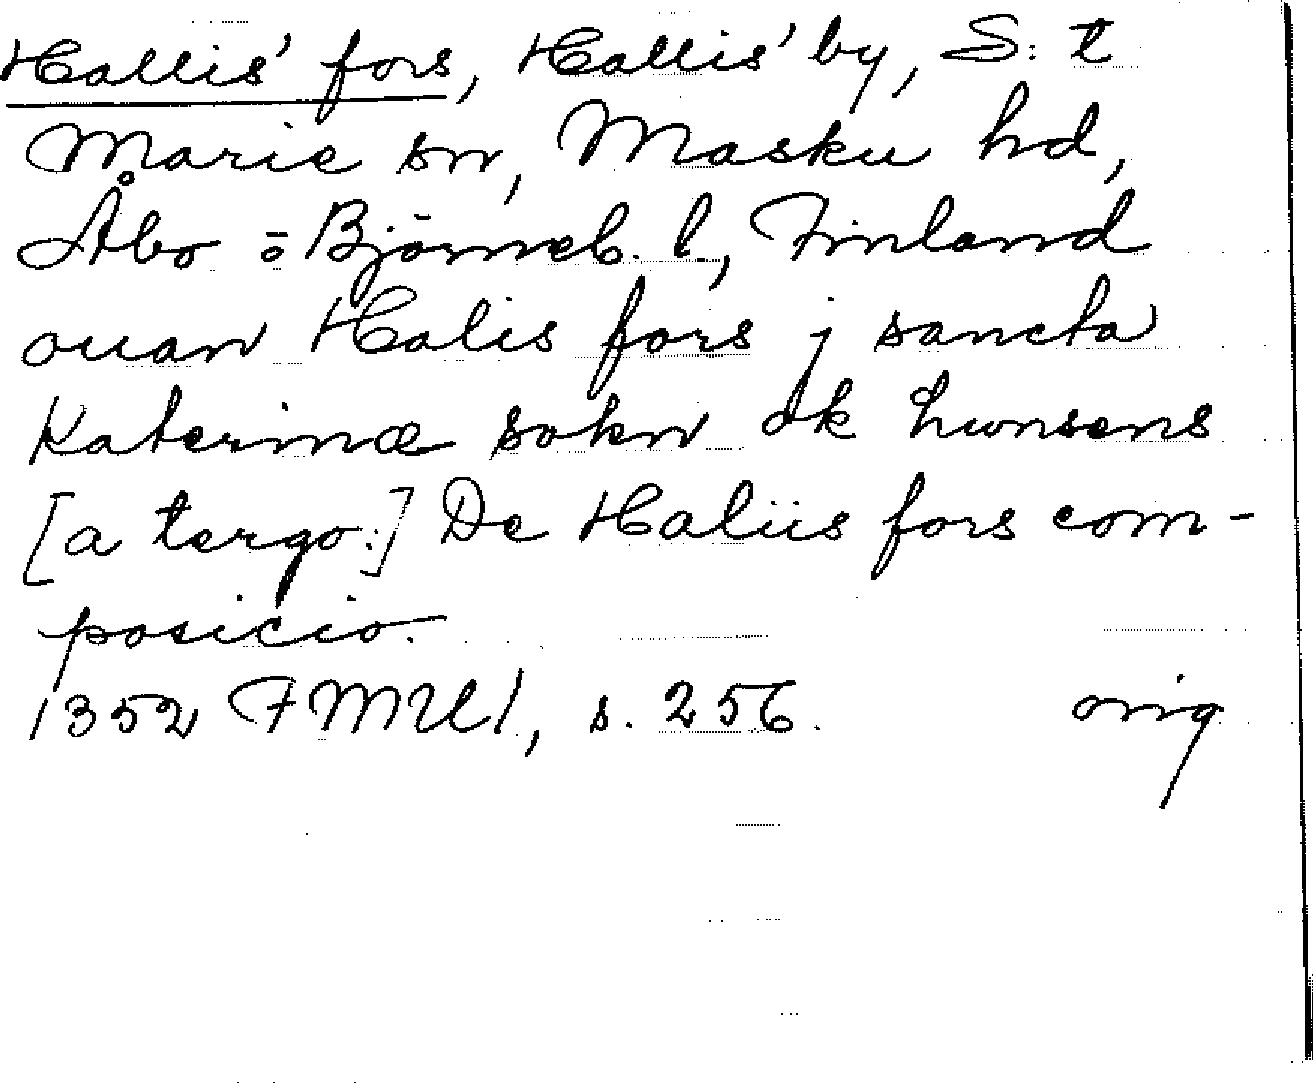 Hallis' fors, Hallis' by, S:t
Marie sn, Masku hd,
Åbo o Björneb. l., Finland
ouan Halis fors j sancta
Katerinæ sokn ok hwnsens
[a tergo:] De Haliis fors com-
posicio.
1352 FMU1, s. 256. orig